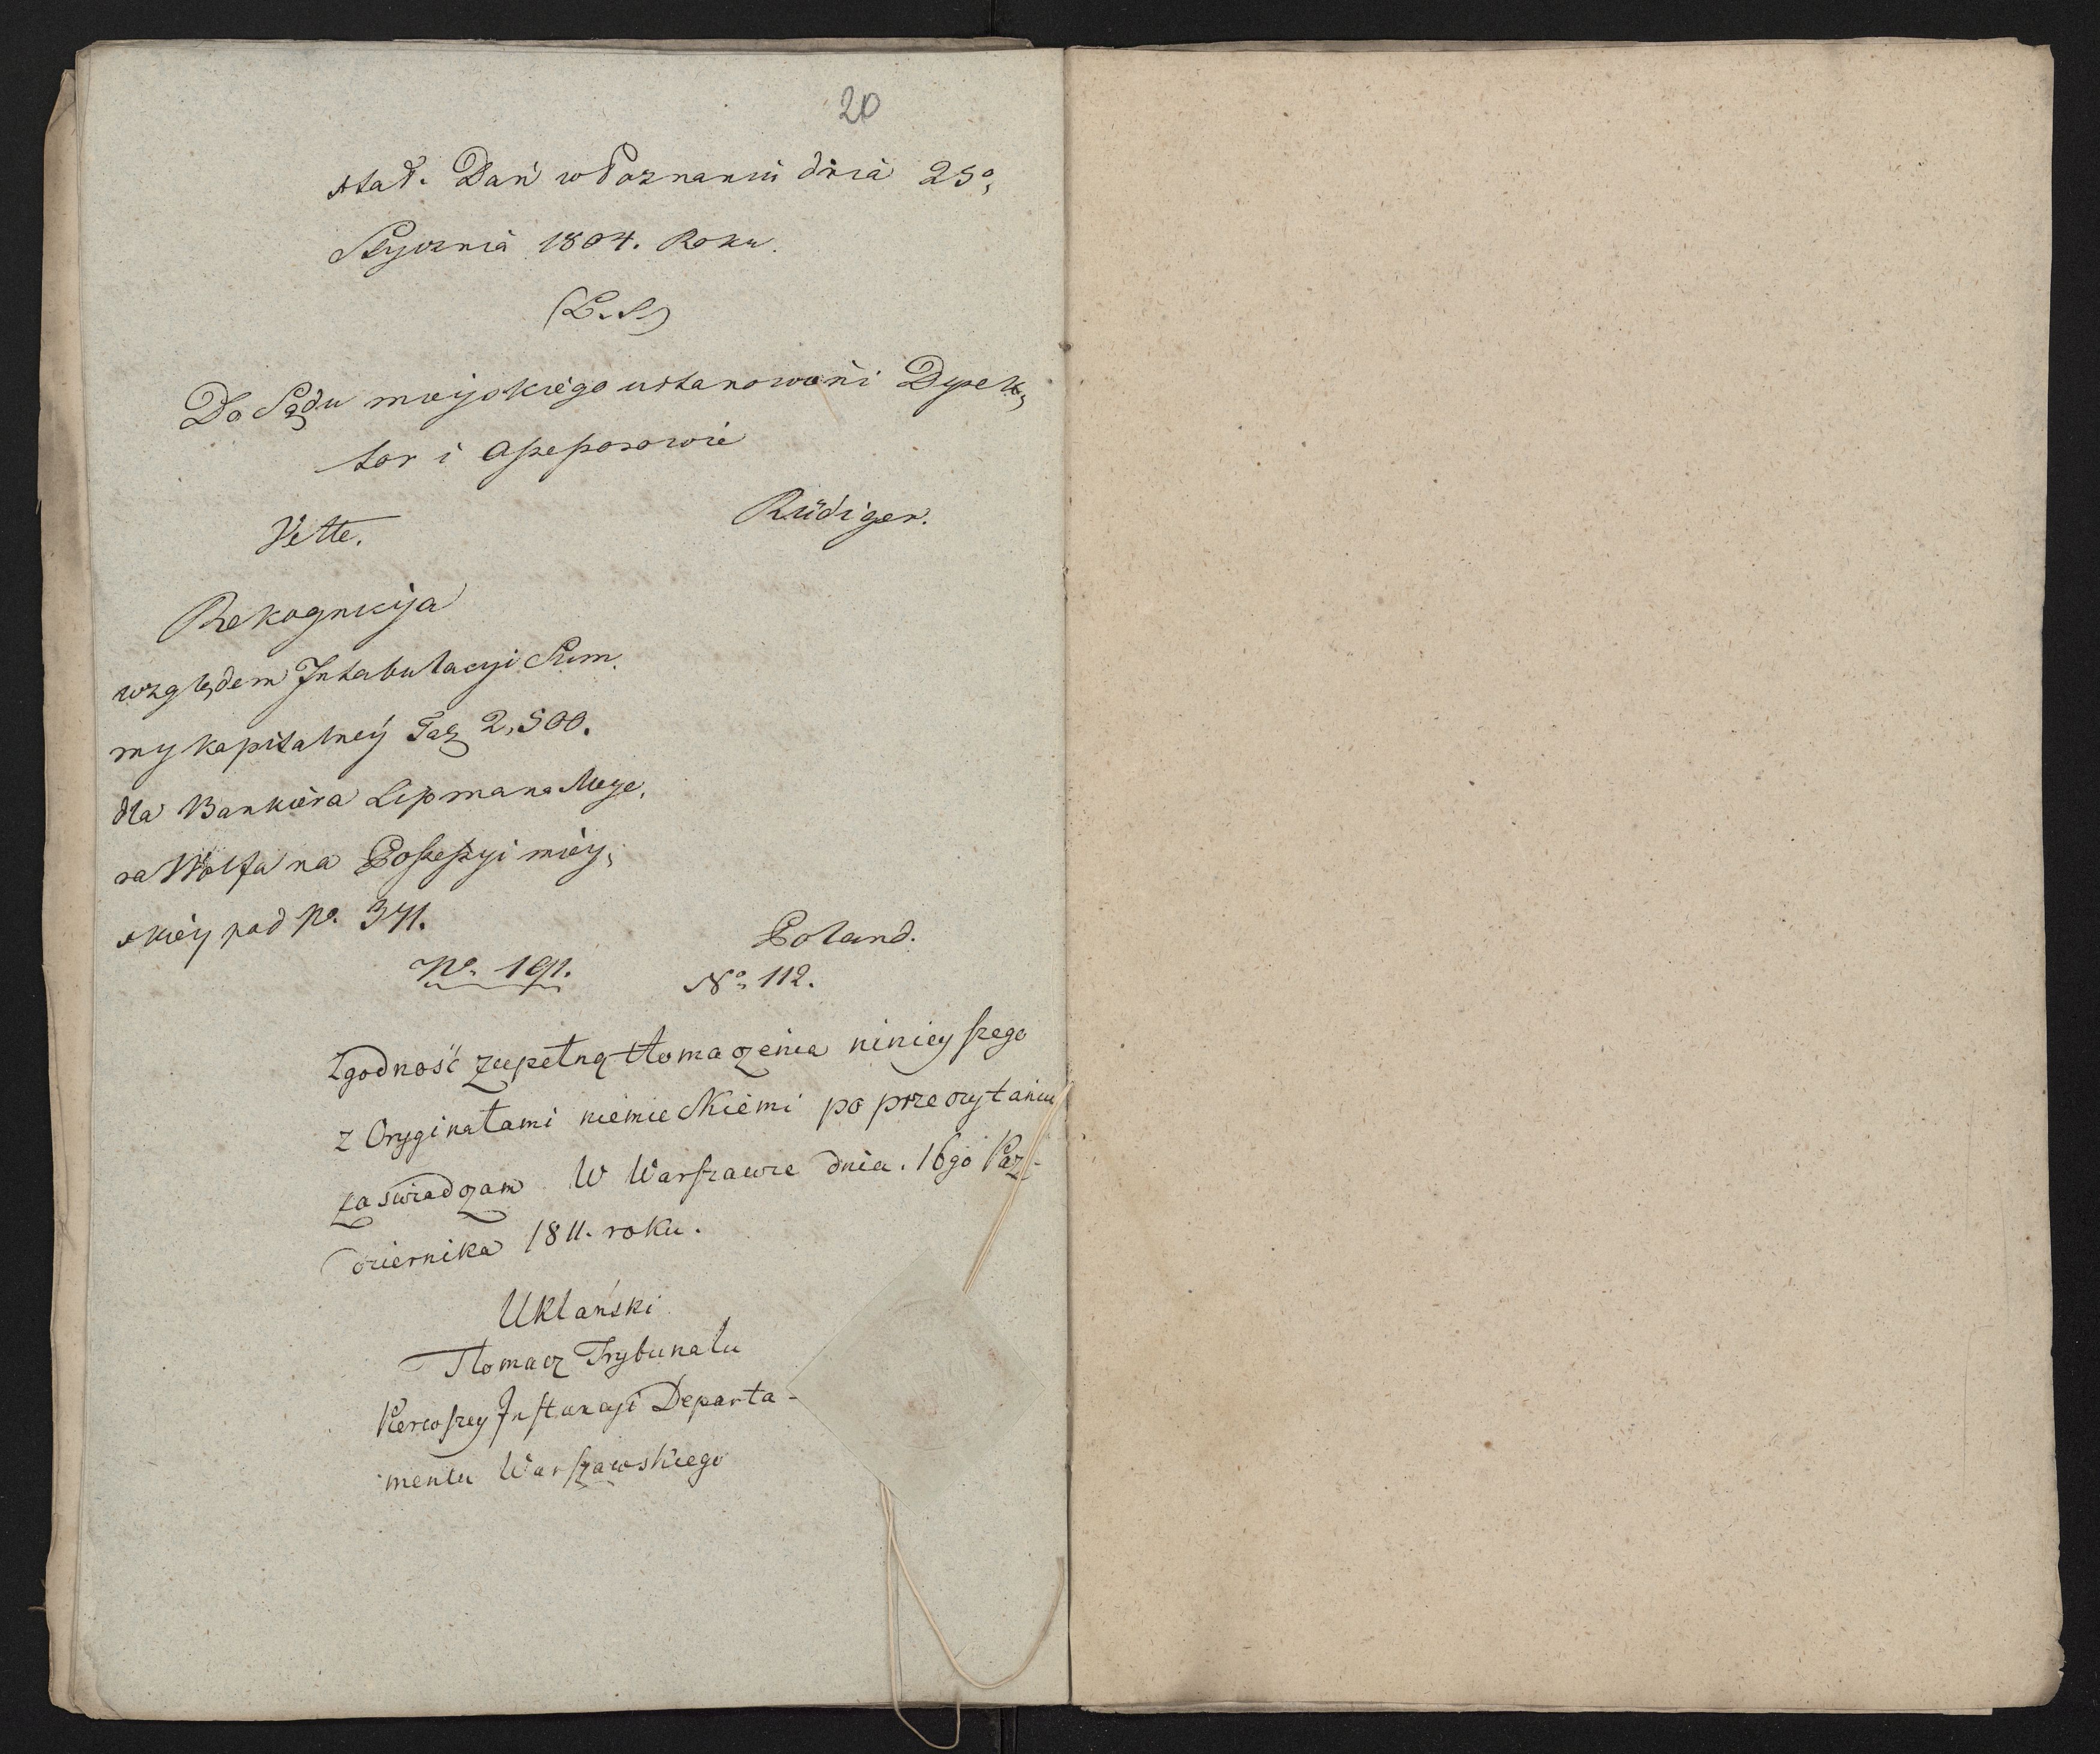 20
stał. Dań w Poznaniu dnia 25º,
Stycznia 1804. Roku.
(L. S.)
Do Sądu mieyskiego ustanowieni Dyrek,
tor i Aszeszorowie
Vette. Rüdiger.
Rekognicija
względem Intabulacyi Sum,
my kapitalney Tal 2,500.
dla Bankiera Lipmana Meye,
ra Wolfa na Poszeszyi miey,
skiey pod No. 371.
Poland.
No. 191. Nº 112.
Zgodność zupełną tłomaczenia ninieyszego
z Oryginałami niemieckiemi po przeczytaniu
zaświadczam W Warszawie dnia. 16go Paź-
dziernika 1811. roku.
Uklański
Tłomacz Trybunału
Pierwszey Instancyi Departa-
mentu Warszawskiego